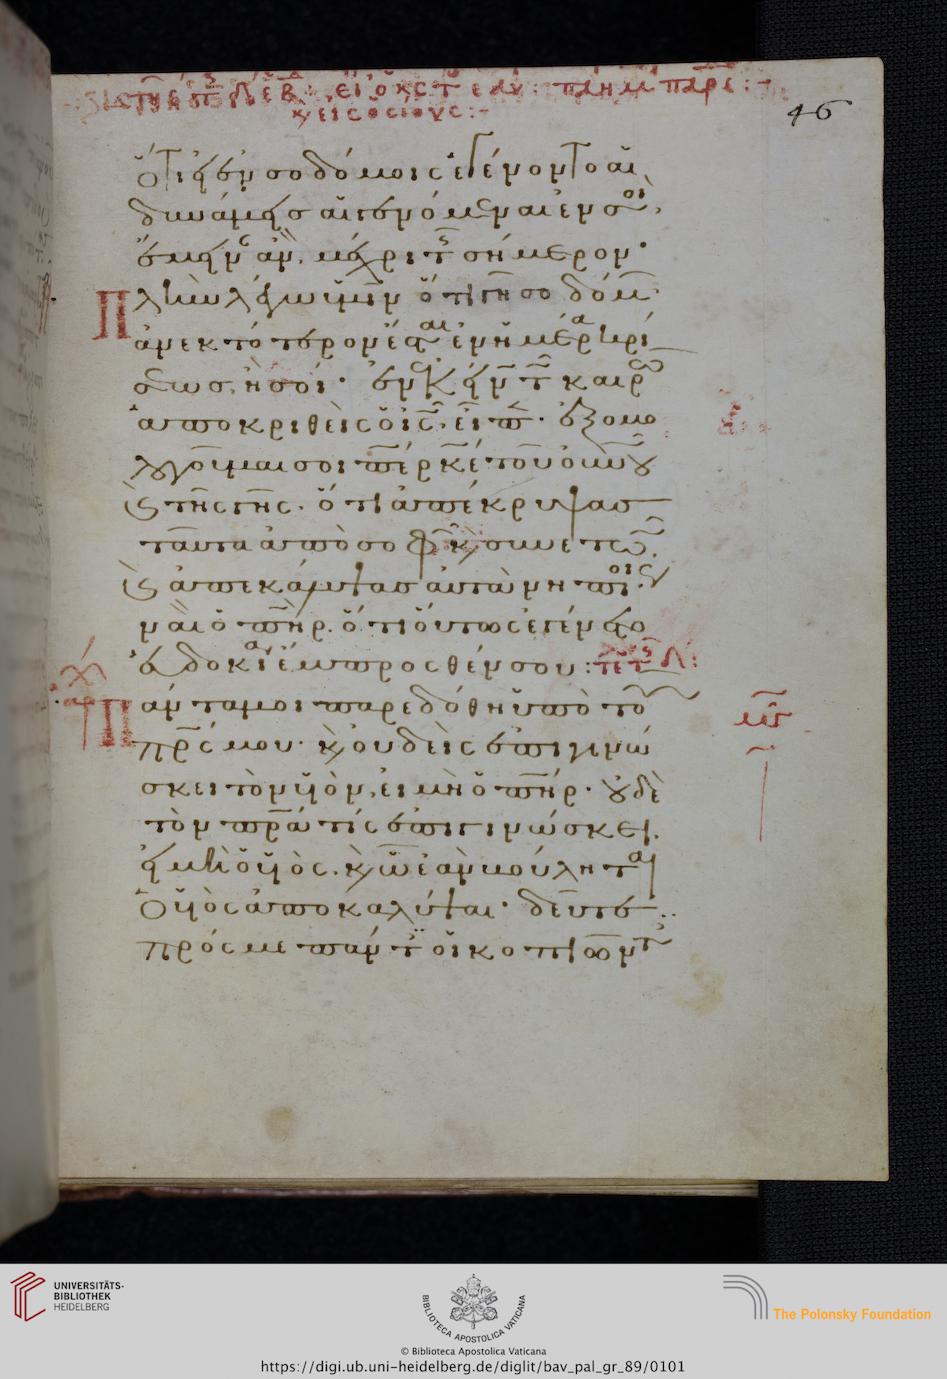 46
ὅτι εἰ ἐν σοδόμοις ἐγένοντο αἱ
δυνάμεις αἱ γενόμεναι ἐν σοὶ,
ἔμειναν ἂν μέχρι τῆς σήμερον·
Πλὴν λέγω ὑμῖν ὅτι γῆ σοδόμ·
ἀνεκτότερον ἔσται ἐν ἡμέρα κρί
σεως, ἢ σοί· ἐν ἐκείνω τῶ καιρῶ
ἀποκριθεὶς ὁ ις, εἶπεν· ἐξομο
λογοῦμαι σοι περ κε τοῦ ουνου
καὶ τῆς γῆς· ὅτι ἀπέκρυψας
ταῦτα ἀπὸ σοφῶν κ συνετῶν,
καὶ ἀπεκάλυψας αὐτὰ νηπίοις·
ναὶ ὁ πηρ, ὅτι οὕτως ἐγένετο
εὐδοκία ἔμπροσθέν σου:
Πάντα μοι παρεδόθη ὑπὸ τοῦ
πρς μου· κ οὐδεὶς ἐπιγινώ
σκει τὸν υἱὸν, εἰ μὴ ὁ πηρ· οὐδὲ
τὸν πρα τίς ἐπιγινώσκει,
εἰ μὴ ὁ υἱὸς, κ ὧ ἐὰν βούληται
ὁ υἱὸς ἀποκαλύψαι· δεῦτε
πρός με πάντες οἱ κοπιῶντες
UNIVERSITÄTS-
BIBLIOTHEK
HEIDELBERG
BIBLIOTECA APOSTOLICA VATICANA
The Polonsky Foundation
© Biblioteca Apostolica Vaticana
https://digi.ub.uni-heidelberg.de/diglit/bav_pal_gr_89/0101